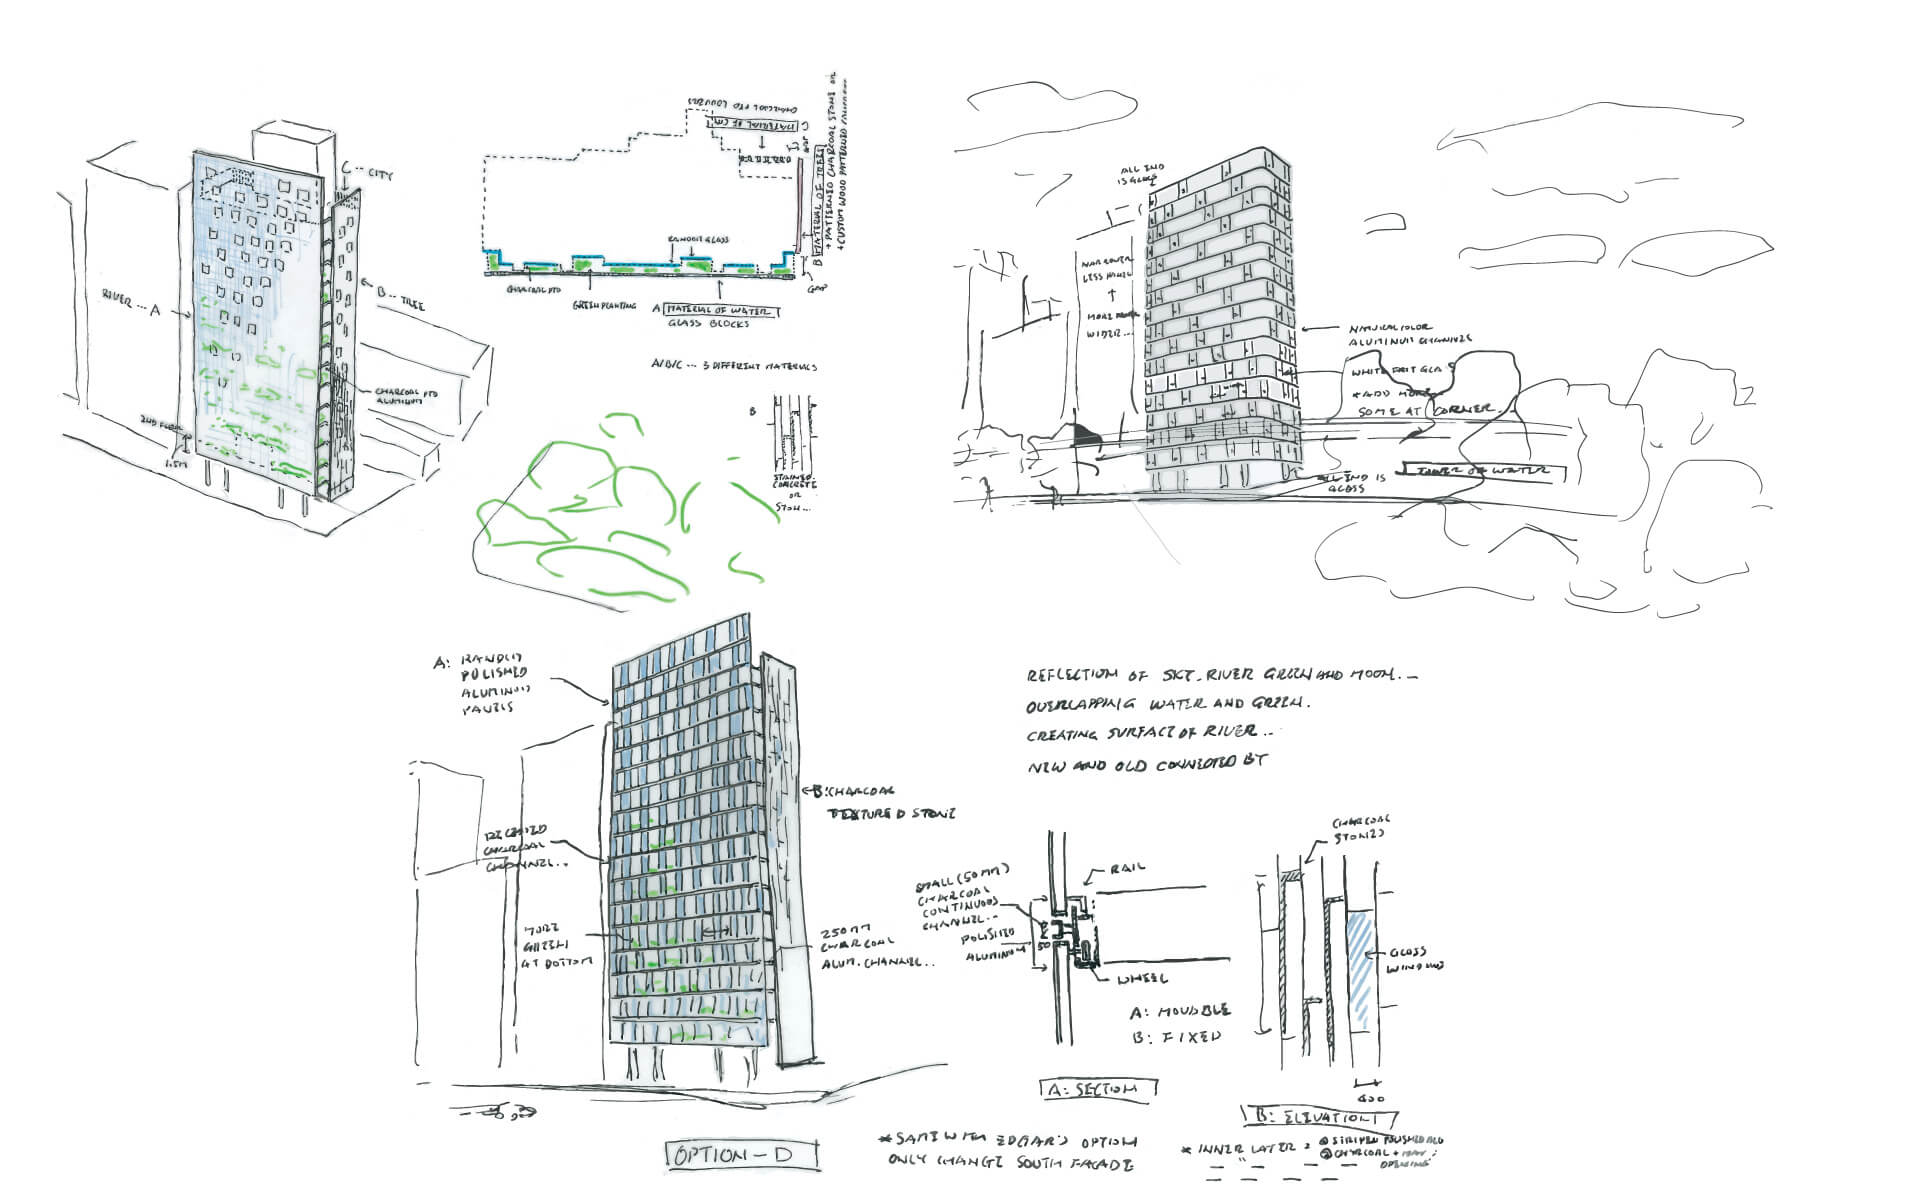 C -- CITY
RIVER --- A
B -- TREE
CHARCOAL PTD
ALUMINUM
2ND FLOOR
1.5M
CHARCOAL PTD LOUVERS
MATERIAL OF CITY
C
B MATERIAL OF TREES
+ PATTERNED CHARCOAL STONE OR
+ CUSTOM WOOD PATTERNED
GLASS
CHARCOAL PTD
GREEN PLANTING
A MATERIAL OF WATER
GLASS BLOCKS
A/B/C --- 3 DIFFERENT MATERIALS
B
STAINED
CONCRETE
OR
STON...
ALL END
IS GLASS
NARROWER
LESS
MORE
WIDER...
NATURAL COLOR
ALUMINUM CHANNEL
WHITE FRIT GLASS
* ADD MORE
SOME AT CORNER...
TOWER OF WATER
ALL END IS
GLASS
A: RANDOM
POLISHED
ALUMINUM
PANELS
B: CHARCOAL
TEXTURED STONE
RECESSED
CHARCOAL
CHANNEL...
MORE
GREEN
AT BOTTOM
250MM
CHARCOAL
ALUM. CHANNEL..
OPTION-D
REFLECTION OF SKY. RIVER GREEN AND MOON..
OVERLAPPING WATER AND GREEN.
CREATING SURFACE OF RIVER..
NEW AND OLD CONNECTED BY
SMALL (50MM)
CHARCOAL
CONTINUOUS
CHANNEL..
POLISHED
ALUMINUM
50
RAIL
WHEEL
A: MOVABLE
B: FIXED
A: SECTION
CHARCOAL
STONES
GLASS
WINDOWS
400
B: ELEVATION
* SAME WITH EDGAR'S OPTION
ONLY CHANGE SOUTH FACADE
* INNER LAYER = ① STRIPED POLISHED ALU
② CHARCOAL +
OPENING